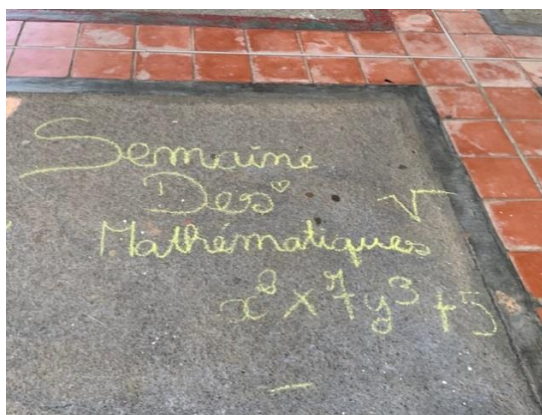 Semaine
Des
√
Mathématiques
x⁸ × 7y³ + 5